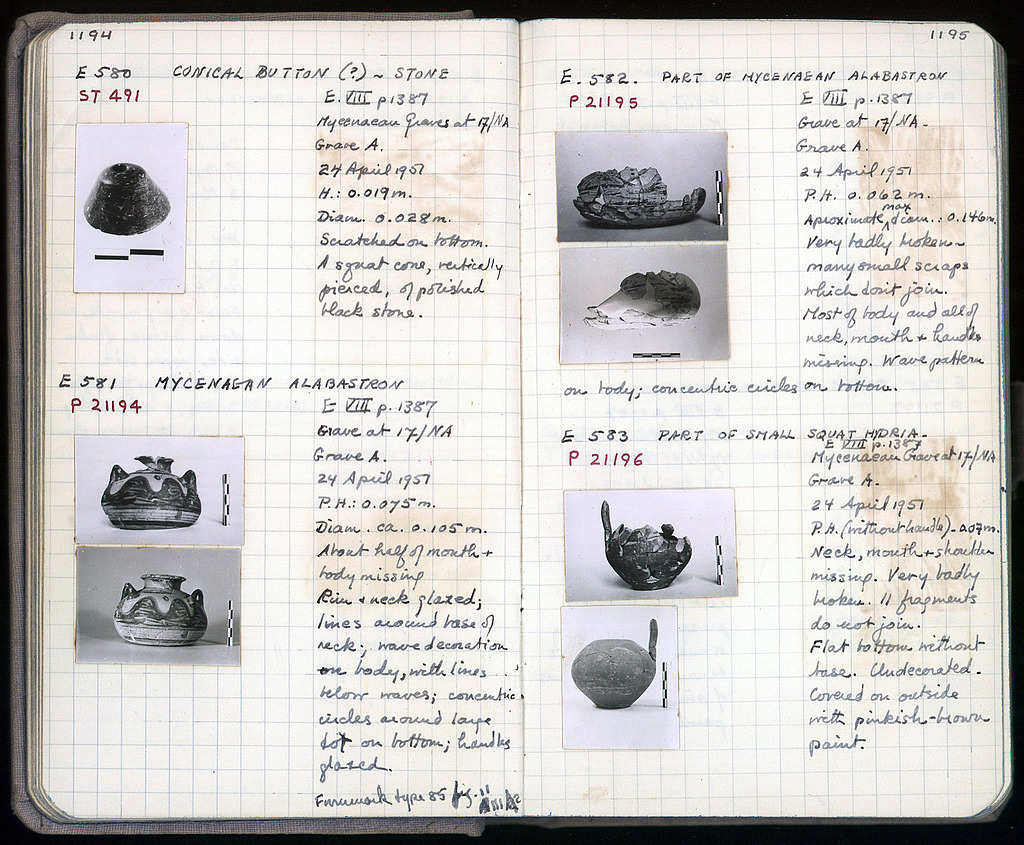 1194
E 580 CONICAL BUTTON (?) ~ STONE
ST 491
E. VIII p1387
Mycenaean Graves at 17/NA
Grave A.
24 April 1951
H.: 0.019 m.
Diam. 0.028 m.
Scratched on bottom.
A squat cone, vertically
pierced, of polished
black stone.
E 581 MYCENAEAN ALABASTRON
P 21194
E VIII p. 1387
Grave at 17/NA
Grave A.
24 April 1951
P.H.: 0.075 m.
Diam. ca. 0.105 m.
About half of mouth +
body missing
Rim + neck glazed;
lines around base of
neck; wave decoration
on body, with lines
below waves; concentric
circles around large
dot on bottom; handles
glazed.
Furumark type 85 fig. 11
1195
E. 582. PART OF MYCENAEAN ALABASTRON
P 21195
E VIII p. 1387
Grave at 17/NA -
Grave A.
24 April 1951
P.H. 0.062 m.
Aproximate max diam.: 0.146 m.
Very badly broken -
many small scraps
which don't join.
Most of body and all of
neck, mouth + handles
missing. Wave pattern
on body; concentric circles on bottom.
E 583 PART OF SMALL SQUAT HYDRIA -
P 21196
E VIII p. 1387
Mycenaean Grave at 17/NA
Grave A.
24 April 1951
P.H. (without handle) - 0.07 m.
Neck, mouth + shoulder
missing. Very badly
broken. 11 fragments
do not join.
Flat bottom without
base. Undecorated.
Covered on outside
with pinkish-brown
paint.